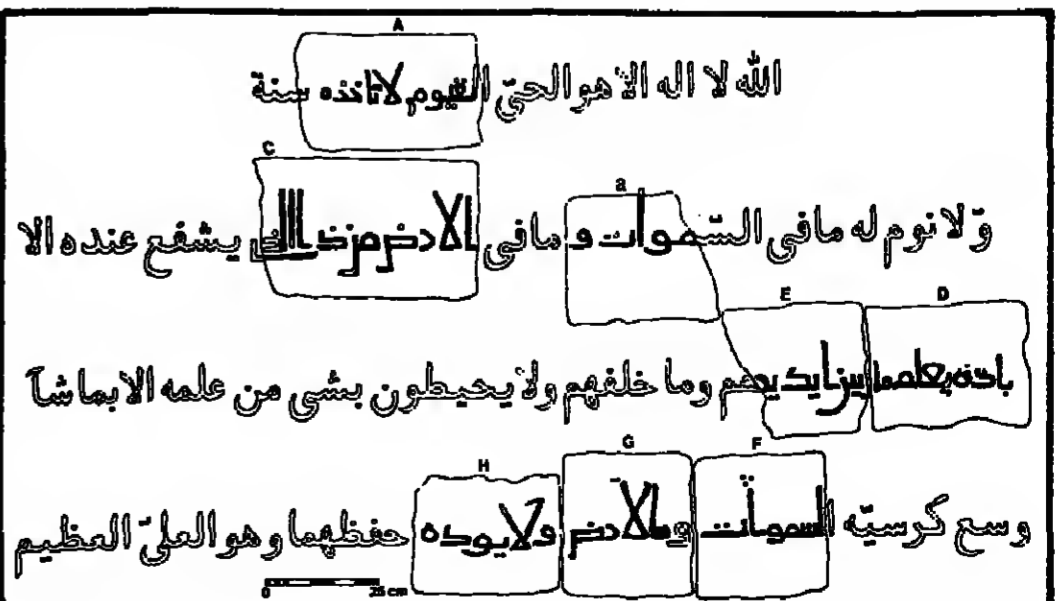 A
الله لا اله الا هو الحيّ القيوم لا تاخذه سنة
C
a
وّلا نوم له مافى السّموات و مافى الارض من ذا الذى يشفع عنده الا
E
D
باذنه يعلم ما بين ايديهم وما خلفهم ولا يحيطون بشى من علمه الابما شآ
H
G
F
وسع كرسيّه السموات والارض ولا يوده حفظهما وهو العلىّ العظيم
0 25 cm